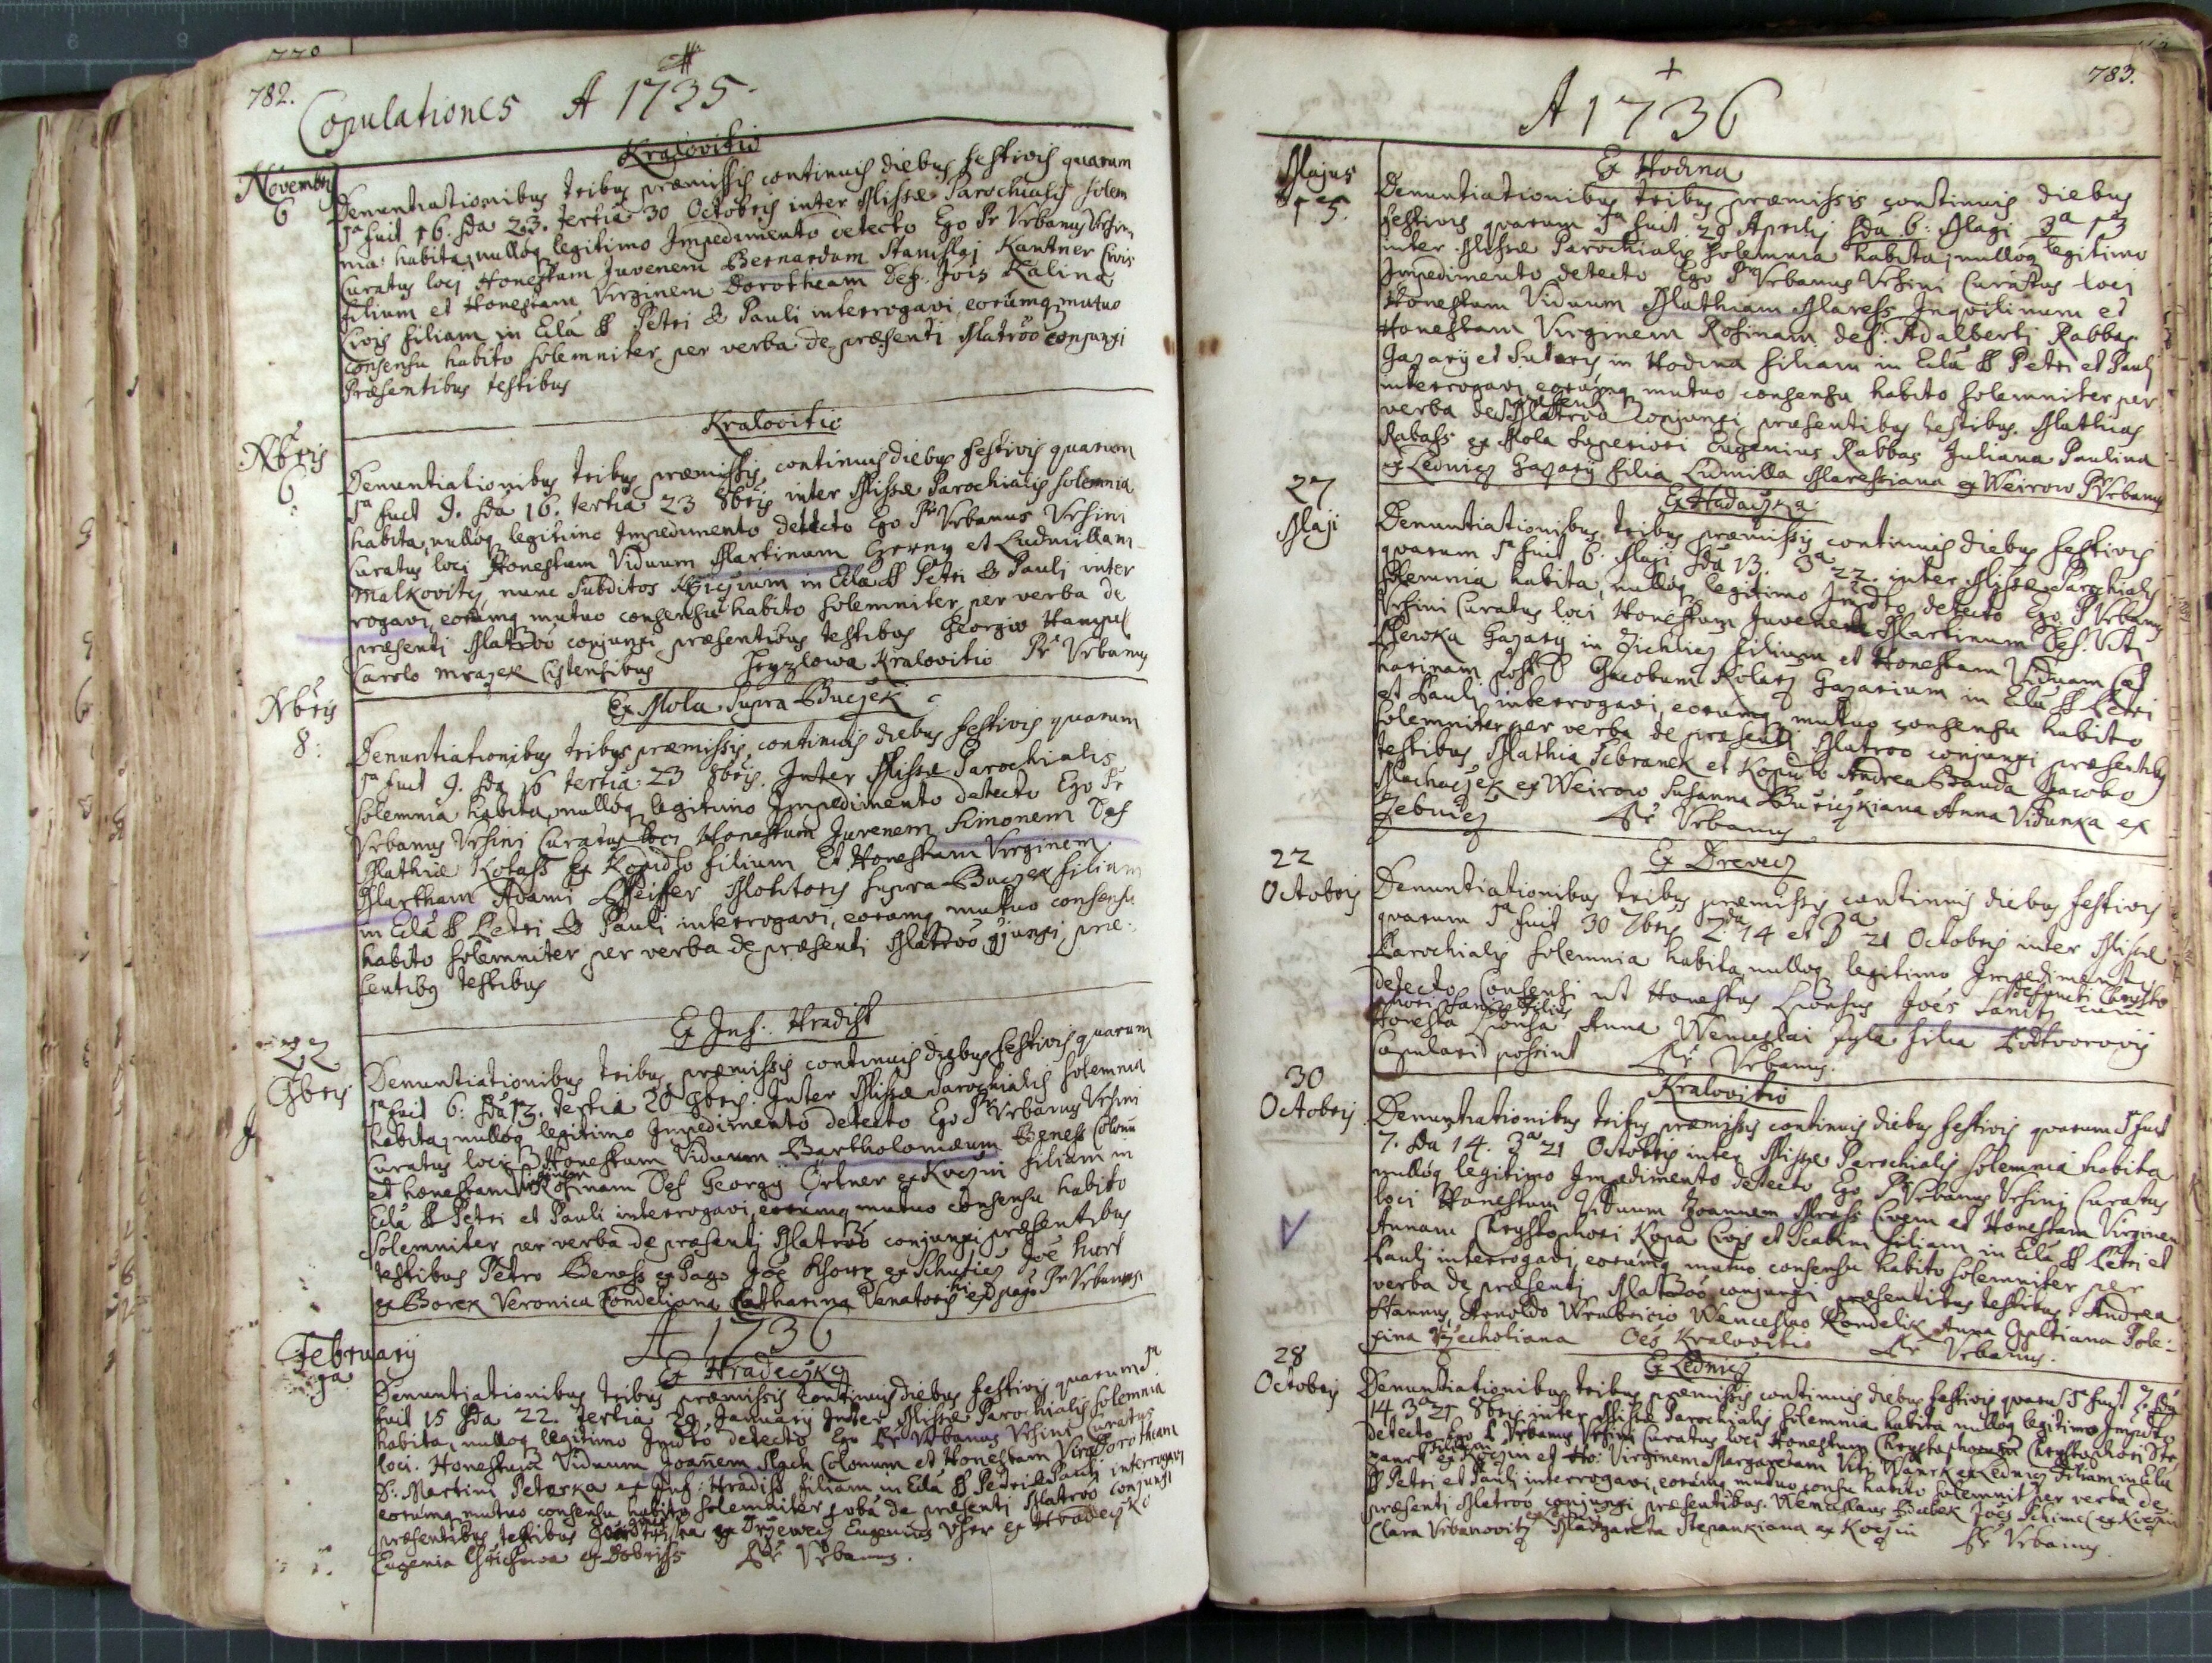 782.
Copulationes A 1735.
Kralovitio
Novembris
6
Denuntiationibus tribus præmissis continuis diebus festivis quarum
1a fuit 16. sda 23. tertia 30 Octobris inter Missæ Parochialis solem
nia habita, nulloq legitimo Impedimento detecto Ego Pr Vrbanus Vrsini
Curatus loci Honestum Juvenem Bernardum Stanislaj Kanttner Civis
filium et Honestam Virginem Dorotheam Def. Jois Kalina
Civis filiam in Ecla SS Petri & Pauli interrogavi, eorumq mutuo
consensu habito solemniter per verba de præsenti Matroo conjunxi
Præsentibus testibus
Kralovitio
Xbris
6
Denuntiationibus tribus præmissis continuis diebus festivis quarum
1a fuit 9. sda 16. tertia 23 8bris inter Missæ Parochialis solemnia
habita, nulloq legitimo Impedimento detecto Ego Pr Vrbanus Vrsini
Curatus loci Honestum Viduum Martinum Czerny et Ludmillam
Malkovitz, nunc Subditos in Ecla SS Petri & Pauli inter
rogavi, eorumq mutuo consensu habito solemniter per verba de
præsenti Matroo conjunxi præsentibus testibus Georgio Hampel
Carolo Mrazek Kralovitio Pr Vrbanus
Ex Mola Supra Buczek
Xbris
8:
Denuntiationibus tribus præmissis continuis diebus festivis quarum
1a fuit 9. sda 16 tertia 23 8bris. Inter Missæ Parochialis
solemnia habita, nulloq legitimo Impedimento detecto Ego Pr
Vrbanus Vrsini Curatus loci Honestum Juvenem Simonem Def
Mathiæ Kotass Ex Kopidlo filium Et Honestam Virginem
Martham Adami Pfeiffer Molitoris supra Buczek filiam
in Ecla SS Petri & Pauli interrogavi, eorumq mutuo consensu
habito solemniter per verba de præsenti Matroo conjunxi, præ-
sentibus testibus
Ex Inf: Hradist
22
9bris
Denuntiationibus tribus præmissis continuis diebus festivis quarum
1a fuit 6: sda 13. tertia 20 9bris. Inter Missæ Parochialis solemnia
habita, nulloq legitimo Impedimento detecto Ego Pr Vrbanus Vrsini
Curatus loci Honestum Viduum Bartholomæum Beness Colonum
et honestam Virginem Rosinam Def Georgy Ortner ex Koczin filiam in
Ecla SS Petri et Pauli interrogavi, eorumq mutuo consensu habito
solemniter per verba de præsenti Matroo conjunxi præsentibus
testibus Petro Beness ex Pago Joe
ex Borek Veronica Fondeliana Catharina Venatoris ex pago Pr Vrbanus
A 1736
Ex Hradeczko
February
Denuntiationibus tribus præmissis continuis diebus festivis quarum 1a
fuit 15 sda 22. tertia 29. January Inter Missæ Parochialis solemnia
habita, nulloq legitimo detecto Ego Pr Vrbanus Vrsini Curatus
loci. Honestum Viduum Joannem Colonum et Honestam Virg Dorotheam
D: Martini Petarka ex Inf: Hradiss filiam in Ecla SS Petri et Pauli interrogavi
eorumq mutuo consensu habito solemniter verba de præsenti Matroo conjunxi
præsentibus testibus ex Drzewecz Eugenius ex Hradeczko
Eugenia ex Dobrziss Pr Vrbanus.
783.
A 1736
Ex Hodina
Majus
15.
Denuntiationibus tribus præmissis continuis diebus
festivis quarum 1a fuit 29 Aprilis sda 6: Maji 3a 13
inter Missæ Parochialis solemnia habita, nulloq legitimo
Impedimento detecto Ego Pr Vrbanus Vrsini Curatus loci
Honestum Viduum Mathiam Maress Inquilinum et
Honestam Virginem Rosinam def: Adalberti Rabbas
in Hodina filiam in Ecla SS Petri et Pauli
interrogavi eorumq mutuo consensu habito solemniter per
verba de præsenti Matroo conjunxi præsentibus testibus. Mathias
Rabass ex Mola Superiori Eugenius Rabbas Juliana Paulina
ex Lednicz filia Ludmilla Maressiana ex Weirow P Vrbanus
Ex Hadaczka
27
Maji
Denuntiationibus tribus præmissis continuis diebus festivis
quarum 1a fuit 6. Maji sda 13. 3a 22. inter Missæ Parochialis
solemnia habita, nulloq legitimo detecto Ego P Vrbanus
Vrsini Curatus loci Honestum Juvenem Martinum Def. Viti
in Zichlicz filium et Honestam Viduam Cat
harinam post Jacobum Kolarz in Ecla SS Petri
et Pauli interrogavi, eorumq mutuo consensu habito
solemniter per verba de præsenti Matroo conjunxi præsentibus
testibus Mathia Sebranek et Andrea Banda Jacobo
Machaczek ex Weirow Susanna Anna Vidunka ex
Pr Vrbanus
Ex Drevecz
22
Octobris
Denuntiationibus tribus præmissis continuis diebus festivis
quarum 1a fuit 30 7bris 2da 14 et 3a 21 Octobris inter Missæ
Parochialis solemnia habita, nulloq legitimo Impedimento
detecto Consensi ut Honestus Sponsus Joes Sanitz cum
Honesta Sponsa Anna Wenceslai filia
Copulari possint Pr Vrbanus.
Kralovitio
30
Octobris
Denuntiationibus tribus præmissis continuis diebus festivis quarum 1 fuit
7. sda 14. 3a 21 Octobris inter Missæ Parochialis solemnia habita
nulloq legitimo Impedimento detecto Ego Pr Vrbanus Vrsini Curatus
loci Honestum Viduum Joannem Civem et Honestam Virginem
Annam Chrystophori Kopa Civis et Scabini filiam in Ecla SS Petri et
Pauli interrogavi, eorumq mutuo consensu habito solemniter per
verba de præsenti Matroo conjunxi præsentibus testibus Andrea
Arnoldo Wenceslao Kondelik Anna Pole-
xina Oes Kralovitio Pr Vrbanus.
Ex Lednicz
28
Octobris
Denuntiationibus tribus præmissis continuis diebus festivis quaru 1a fuit 7. sda
14 3a 21 8bris inter Missæ Parochialis solemnia habita nulloq legitimo
detecto Ego P Vrbanus Vrsini Curatus loci Honestum
ex Koczin et Virginem Margaretam Viti ex Lednicz filiam in Ecla
SS Petri et Pauli interrogavi, eorumq mutuo habito solemnit per verba de
præsenti Matroo conjunxi præsentibus. Wenceslaus Joes ex Koczin
Clara Vrbanovitz Margareta Stepankiana ex Koczin Pr Vrbanus